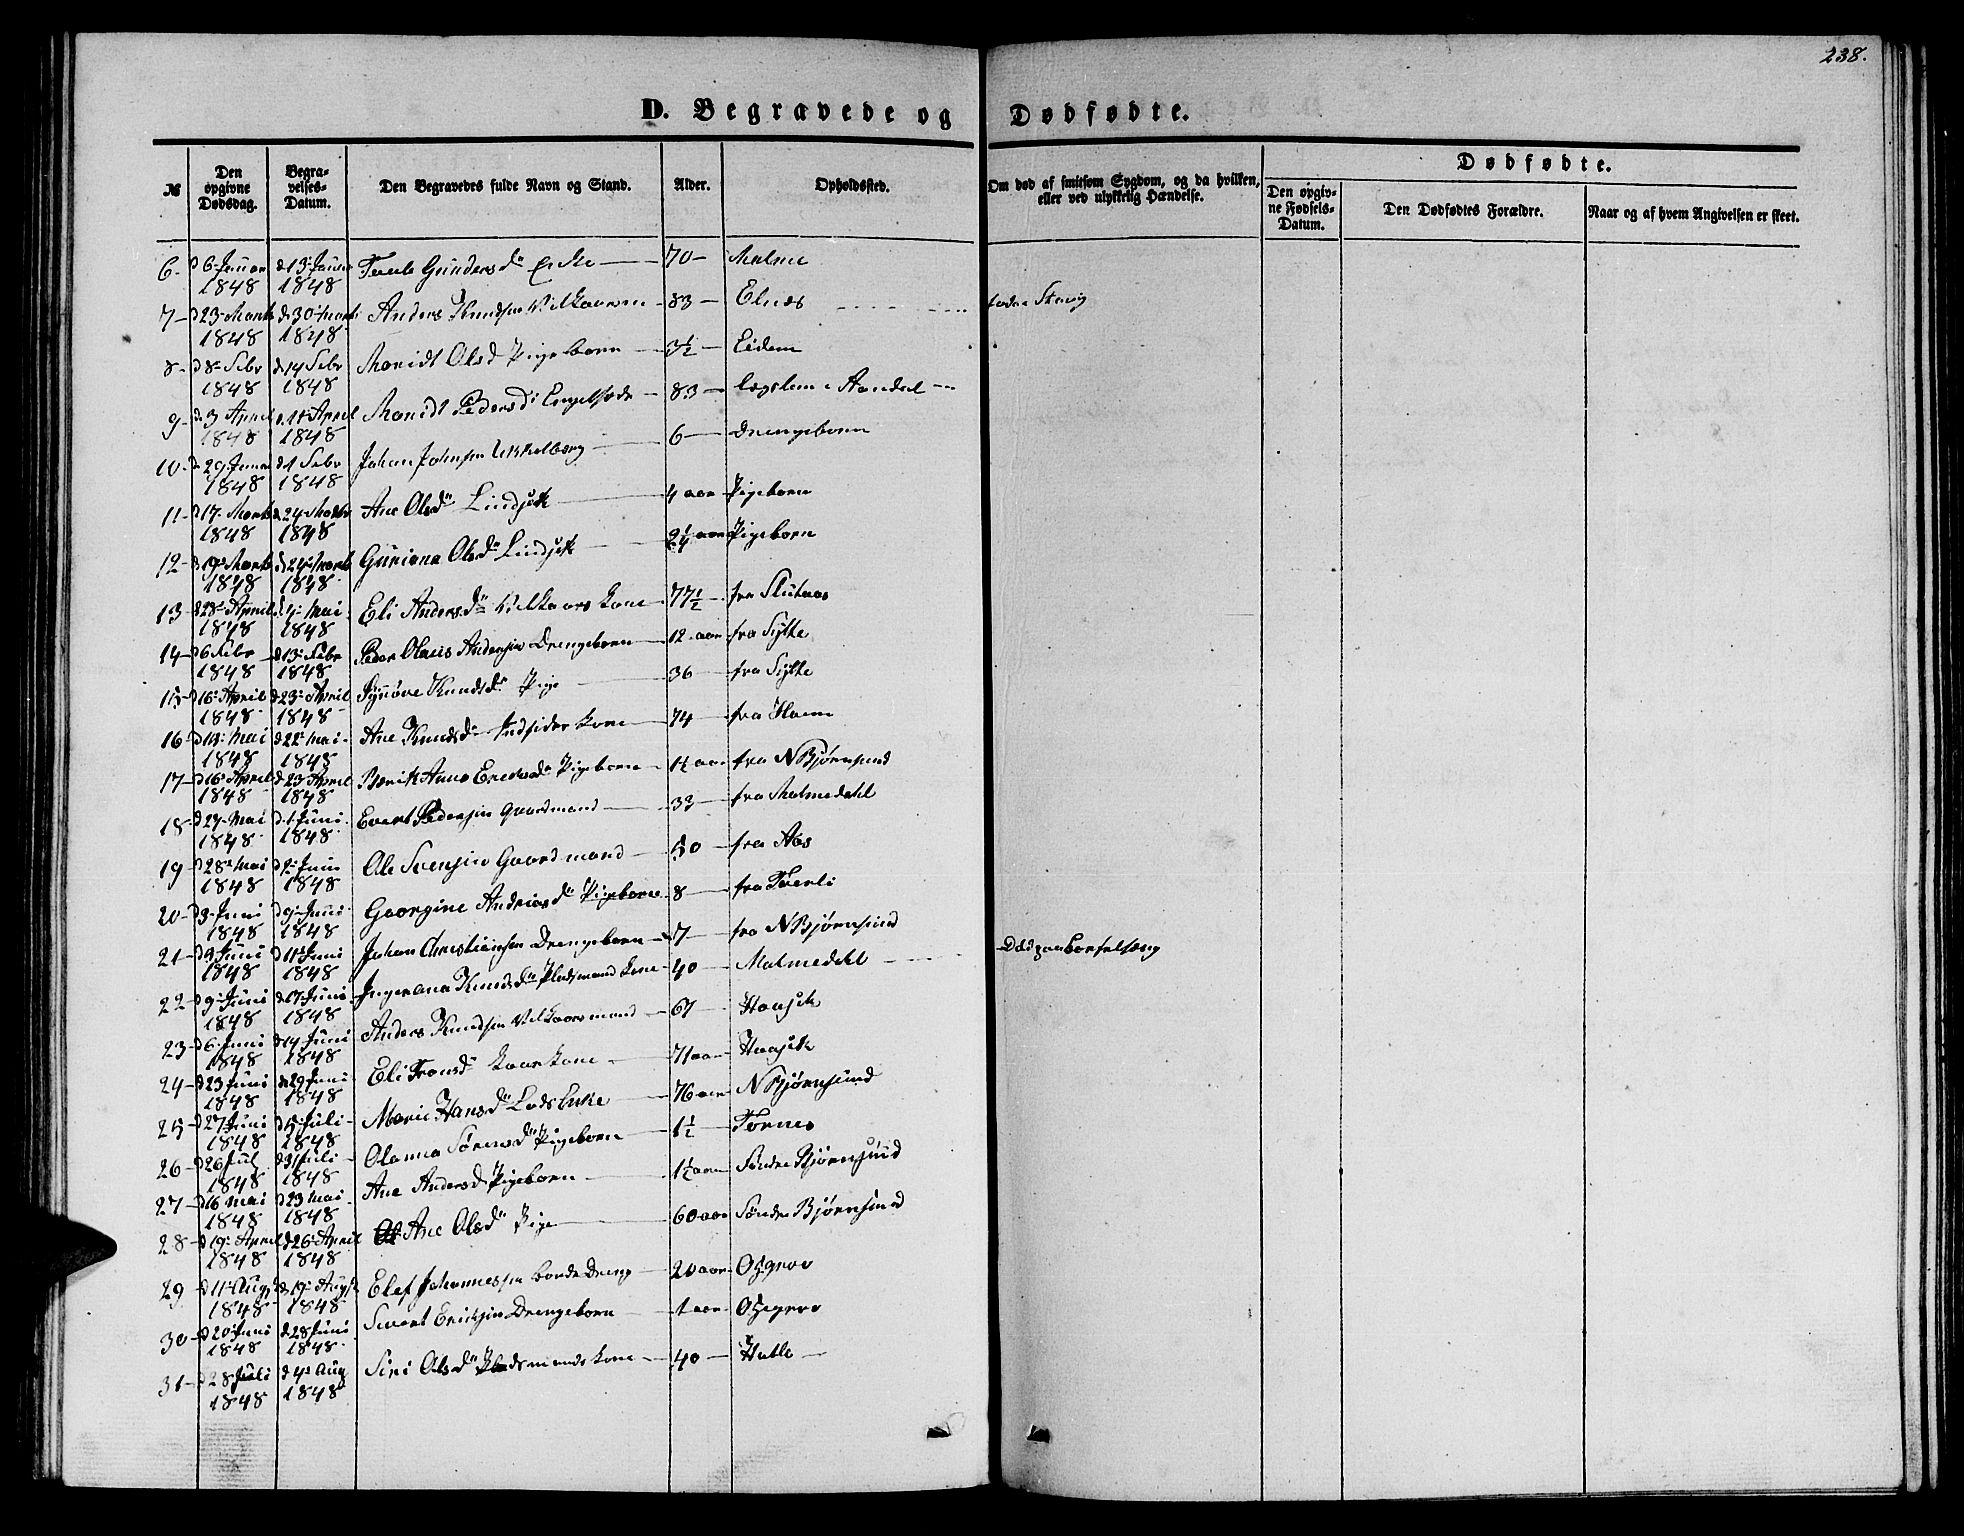 238.
D. Begravede og Dødfødte.
№ | Den opgivne Dødsdag. | Begravelses-Datum. | Den Begravedes fulde Navn og Stand. | Alder. | Opholdssted. | Om død af smitsom Sygdom, og da hvilken, eller ved ulykkelig Hændelse. | Dødfødte. | Den opgivne Fødsels-Datum. | Den Dødfødtes Forældre. | Naar og af hvem Angivelsen er skeet.
6- d 6 Januar 1848 d 13 Januar 1848 Gundersdr Enke 70- Malme
7- d 23 Marts 1848 d 30 Marts 1848 Anders Knudsen Vilkaarsm 83- Elnæs
8- d 8 Febr 1848 d 14 Febr 1848 Maridt Olsd Pigebarn 3½- Eidem
9- d 3 April 1848 d 11 April 1848 Maridt Pedersd 83-
10- d 29 Januar 1848 d 1 Febr 1848 Johan Johnsen 6- Drengebarn
11- d 17 Marts 1848 d 24 Marts 1848 Ane Olsdr Lindset 4 aar Pigebarn
12- d 19 Marts 1848 d 24 Marts 1848 Guriana Olsdr Lindset 2¼ aar Pigebarn
13- d 28 April 1848 d 4 Mai 1848 Eli Andersdr Vilkaars kone 77½- fra Slutaas
14- d 6 Febr 1848 d 13 Febr 1848 Peder Olaus Andersen Drengebarn 12 aar fra Sylte
15- d 16 April 1848 d 23 April 1848 Synøve Knudsdr Pige 36 fra Sylte
16- d 14 Mai 1848 d 22 Mai 1848 Ane Knudsdr Indsider kone 74 fra Haem
17- d 16 April 1848 d 23 April 1848 Berit Anne Pigebarn 1½ aar fra N Bjørnsund
18- d 27 Mai 1848 d 1 Juni 1848 Evert Pedersen Gaardmand 33 fra Malmedahl
19- d 28 Mai 1848 d 2 Juni 1848 Ole Svensen Gaardmand 50 fra Aas
20- d 3 Juni 1848 d 9 Juni 1848 Georgine Andriasdr Pigebarn 8 fra Tverli
21- d 3 Juni 1848 d 11 Juni 1848 Johan Christiansen Drengebarn 7 fra N Bjørnsund
22- d 9 Juni 1848 d 17 Juni 1848 Ingerana Knudsdr Pladsmand kone 40 Malmedahl Død paa Barselseng
23- d 6 Juni 1848 d 14 Juni 1848 Anders Knudsen Vilkaarsmand 67 Haaset
24- d 23 Juni 1848 d 29 Juni 1848 Eli kaarkone 71 aar Haaset
25- d 27 Juni 1848 d 5 Juli 1848 Marie Hansdr Lods Enke 76 aar N Bjørnsund
26- d 26 Jul 1848 d 31 Juli 1848 Olanna Sørensdr Pigebarn 1½ Tornes
27- d 16 Mai 1848 d 23 Mai 1848 Ane Andersd Pigebarn 1½ aar Søndre Bjørnsund
28- d 19 April 1848 d 26 April 1848 Ane Olsdr Pige 60 aar Søndre Bjørnsund
29- d 11 Aug 1848 d 19 Aug 1848 Elef Johannessen Bonde Dreng 20 aar
30- d 20 Juni 1848 d 28 Juni 1848 Sivert Eriksen Drengebarn 1 aar
31- d 28 Juli 1848 d 4 Aug 1848 Siri Olsdr Pladsmands kone 40